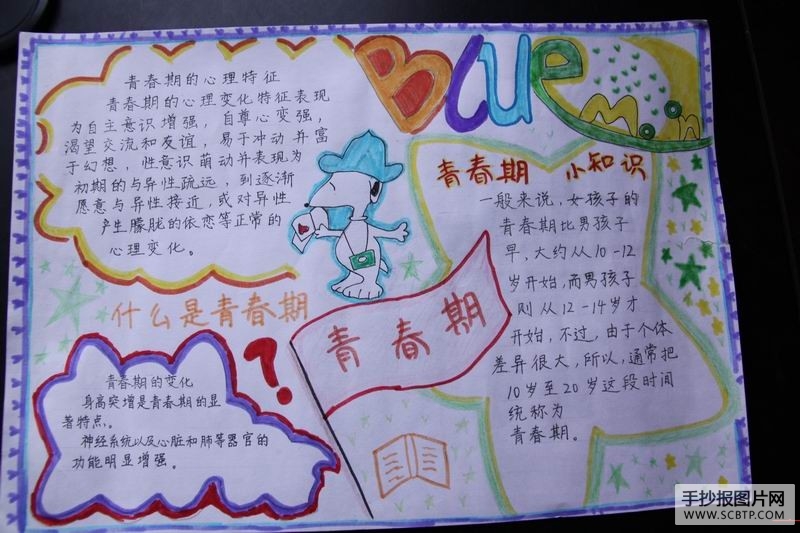 Blue
Moon
青春期的心理特征
青春期的心理变化特征表现
为自主意识增强，自尊心变强，
渴望交流和友谊，易于冲动并富
于幻想，性意识萌动并表现为
初期的与异性疏远，到逐渐
愿意与异性接近，或对异性
产生朦胧的依恋等正常的
心理变化。
青春期 小知识
一般来说，女孩子的
青春期比男孩子
早，大约从10-12
岁开始，而男孩子
则从12-14岁才
开始，不过，由于个体
差异很大，所以，通常把
10岁至20岁这段时间
统称为
青春期。
什么是青春期
?
青春期
青春期的变化
身高突增是青春期的显
著特点。
神经系统以及心脏和肺等器官的
功能明显增强。
手抄报图片网
WWW.SCBTP.COM